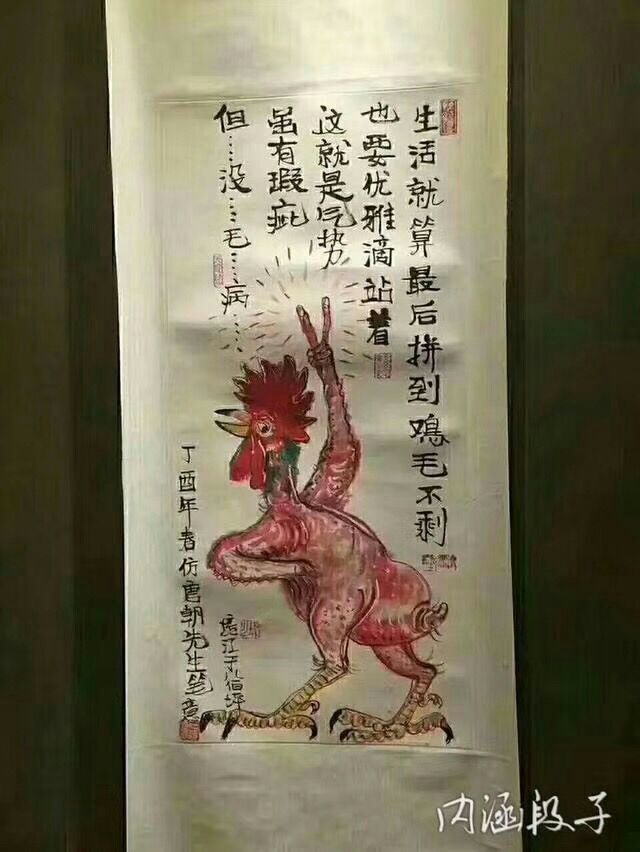 生活就算最后拼到鸡毛不剩
也要优雅滴站着
这就是气势
虽有瑕疵
但……没……毛……病……
丁酉年春仿唐朝先生笔意
内涵段子